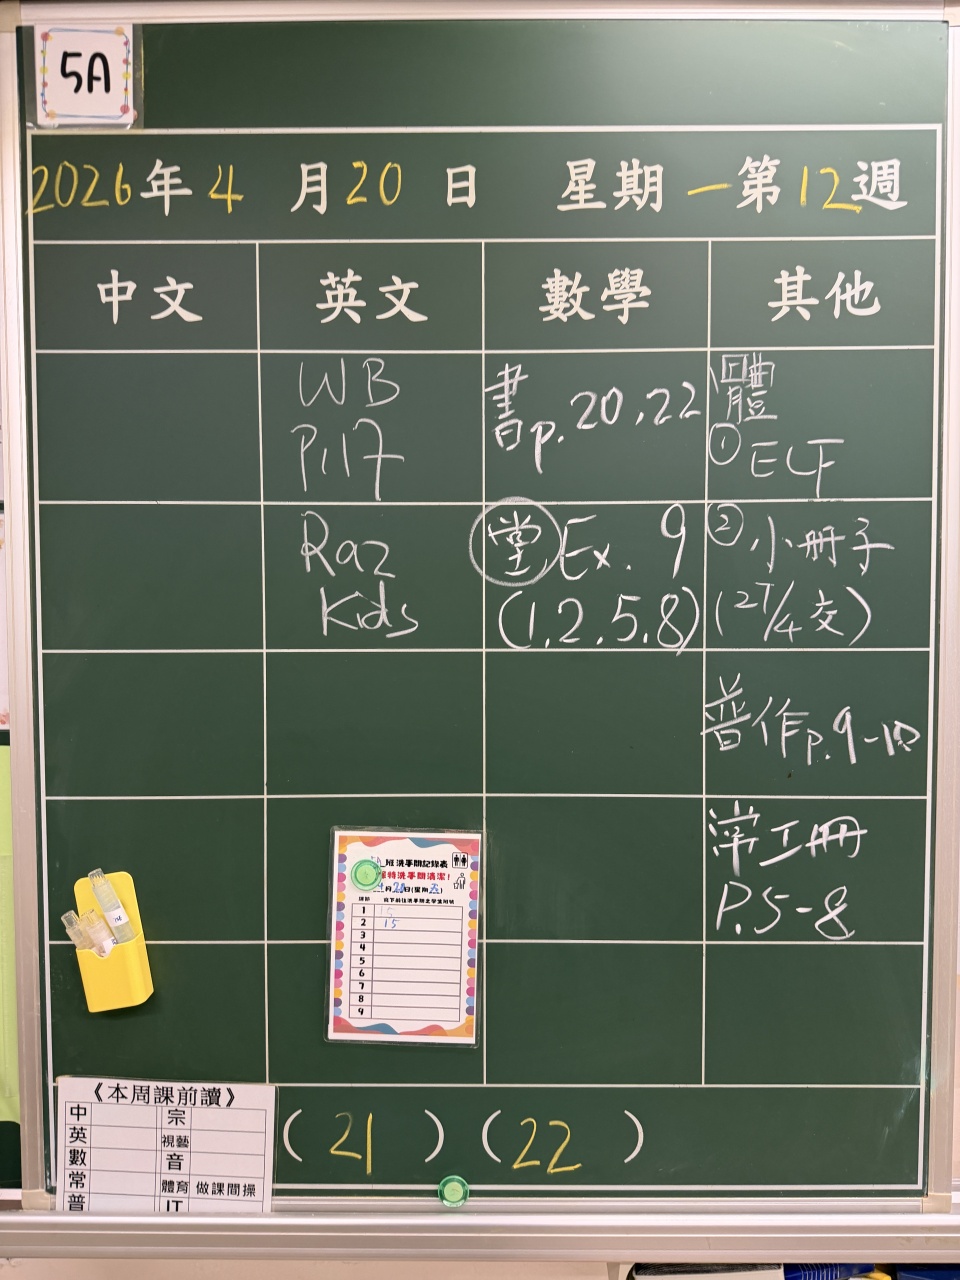 5A
2026年4月20日 星期一 第12週
中文 英文 數學 其他
WB
P.17
Raz
Kids
書p.20,22
堂 Ex. 9
(1,2,5,8)
體
① ELF
② 小冊子
(27/4交)
普作p.9-10
P.5-8
班洗手間記錄表
保持洗手間清潔!
月20日(星期五)
1
2 15
3
4
5
6
7
8
9
《本周課前讀》
中 宗
英 視藝
數 音
常 體育 做課間操
普 IT
(21) (22)